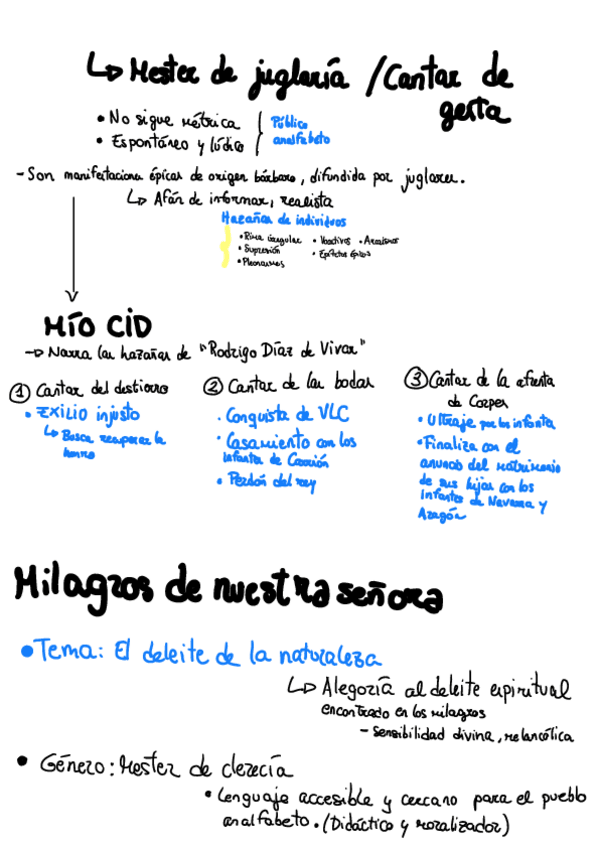 ↳ Mester de juglaría / Cantar de
gesta
• No sigue métrica
• Espontáneo y lúdico
Público
analfabeto
- Son manifestaciones épicas de origen bárbaro, difundida por juglares.
↳ Afán de informar, realista
Hazañas de individuos
• Rima irregular • Vocativos • Arcaísmos
• Supresión • Epítetos épicos
• Pleonasmos
MÍO CID
→ Narra las hazañas de "Rodrigo Díaz de Vivar"
① Cantar del destierro
• EXILIO injusto
↳ Busca recuperar la
honra
② Cantar de las bodas
• Conquista de VLC
• Casamiento con los
infantes de Carrión
• Perdón del rey
③ Cantar de la afrenta
de Corpes
• Ultraje por los infantes
• Finaliza con el
anuncio del matrimonio
de sus hijas con los
Infantes de Navarra y
Aragón
Milagros de nuestra señora
• Tema: El deleite de la naturaleza
↳ Alegoría al deleite espiritual
encontrado en los milagros
- Sensibilidad divina, melancólica
• Género: Mester de clerecía
• Lenguaje accesible y cercano para el pueblo
analfabeto. (Didáctico y moralizador)